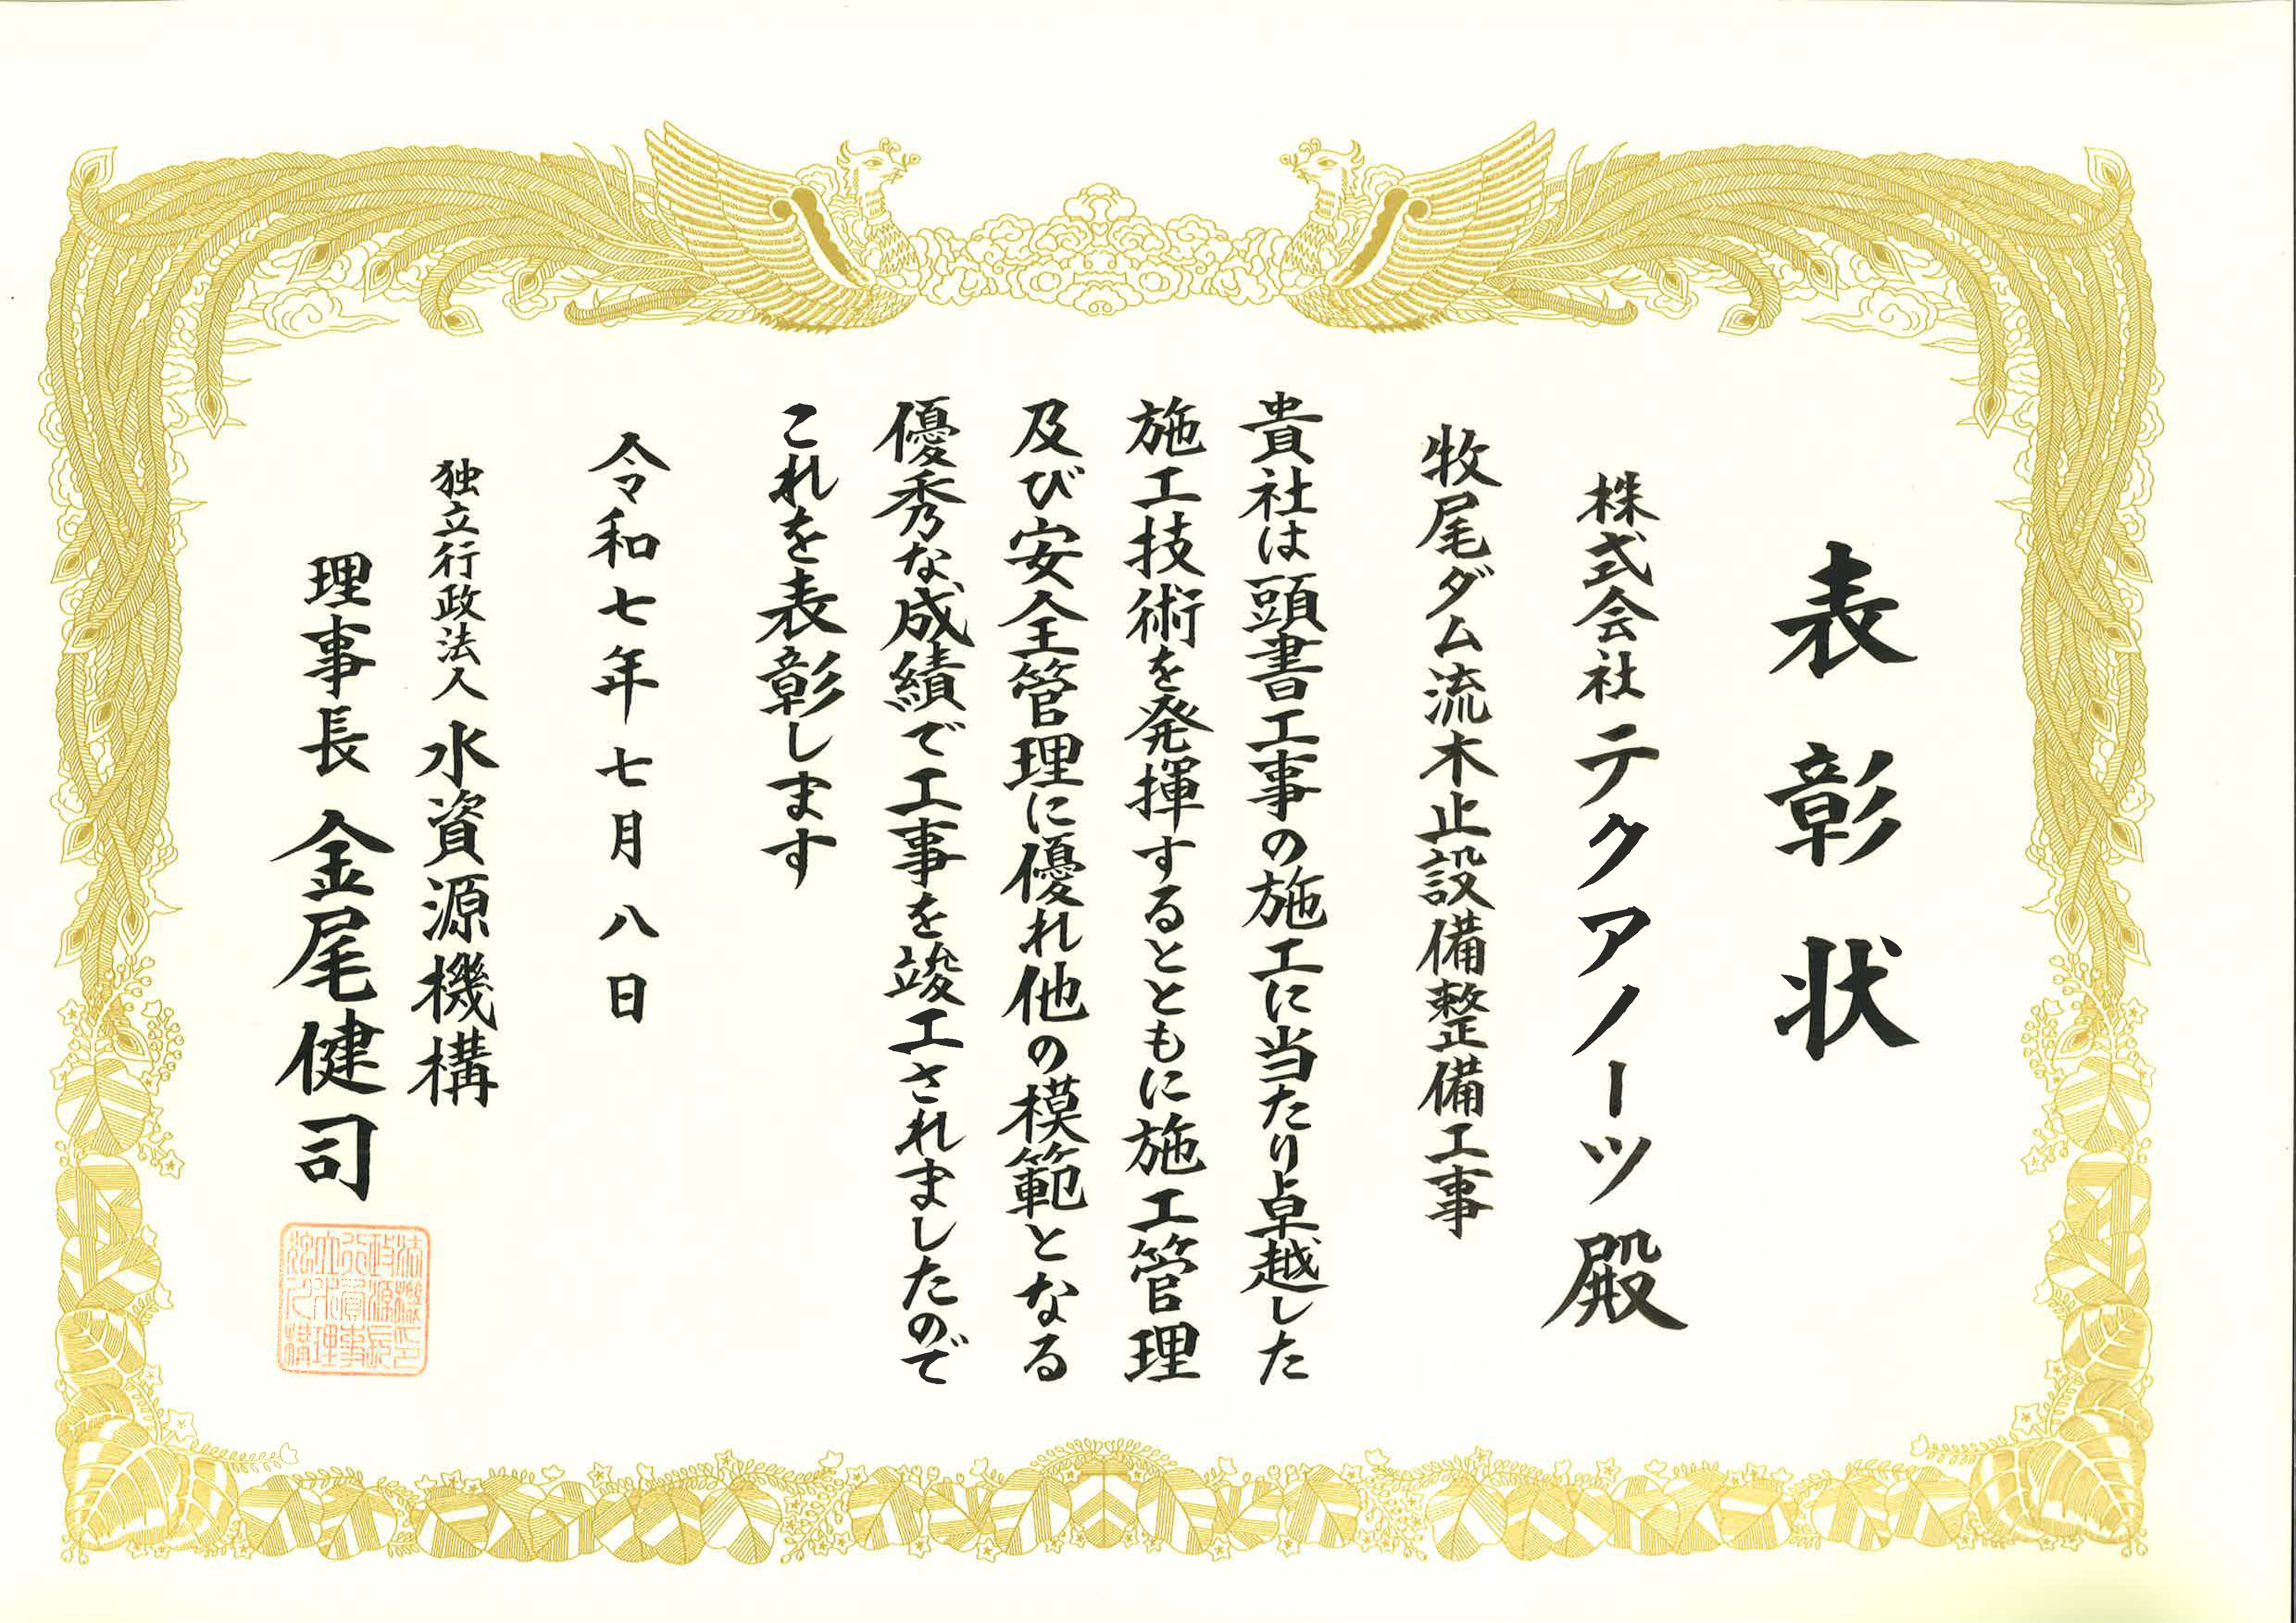 表彰状
株式会社テクアノーツ殿
牧尾ダム流木止設備整備工事
貴社は頭書工事の施工に当たり卓越した
施工技術を発揮するとともに施工管理
及び安全管理に優れ他の模範となる
優秀な成績で工事を竣工されましたので
これを表彰します
令和七年七月八日
独立行政法人水資源機構
理事長金尾健司